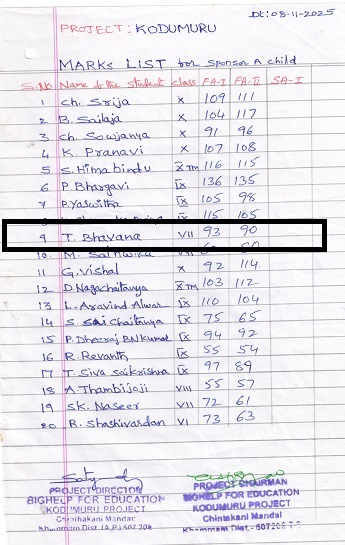 Dt: 08-11-2025
PROJECT: KODUMURU
MARKS LIST for Sponsor A child
S.No Name of the student class FA-I FA-II SA-I
1 Ch. Srija X 109 111
2 B. Sailaja X 104 117
3 Ch. Sowjanya X 91 96
4 K. Pranavi X 107 108
5 S. Himabindu X TM 116 115
6 P. Bhargavi IX 136 135
7 P. Yaswitha IX 105 98
IX 115 105
9 T. Bhavana VII 93 90
10 M. Sathwika VII
11 G. Vishal X 92 114
12 D. Nagachaitanya X TM 103 112
13 L. Aravind Alwar IX 110 104
14 S. Sai Chaitanya IX 75 65
15 P. Dheeraj B.N.Kumar IX 94 92
16 R. Revanth IX 55 54
17 T. Siva Saikrishna IX 97 89
18 A. Thambijoji VIII 55 57
19 SK. Naseer VII 72 61
20 R. Shashivardan VI 73 63
PROJECT DIRECTOR
BIGHELP FOR EDUCATION
KODUMURU PROJECT
Chinthakani Mandal
Khammam Dist.
PROJECT CHAIRMAN
BIGHELP FOR EDUCATION
KODUMURU PROJECT
Chintakani Mandal
Khammam Dist.